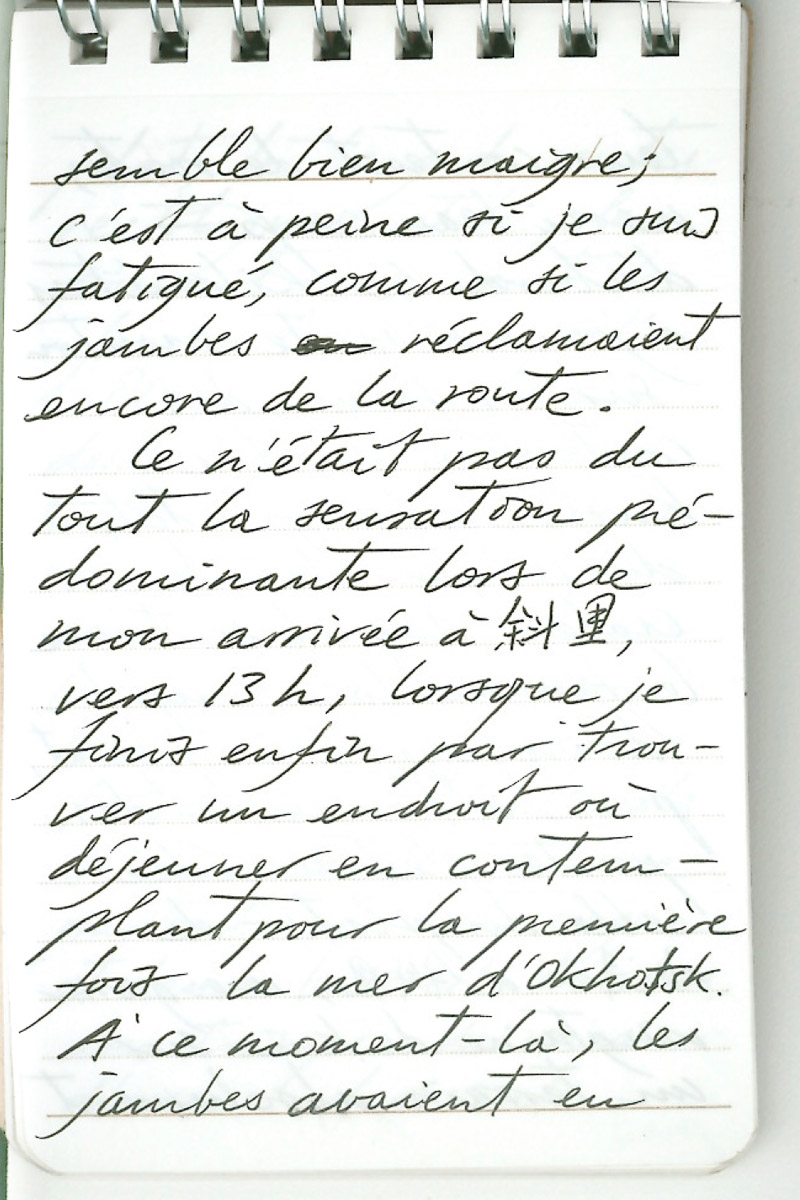 semble bien maigre ;
c'est à peine si je suis
fatigué, comme si les
jambes réclamaient
encore de la route.
Ce n'était pas du
tout la sensation pré-
dominante lors de
mon arrivée à 斜里,
vers 13 h, lorsque je
finis enfin par trou-
ver un endroit où
déjeuner en contem-
plant pour la première
fois la mer d'Okhotsk.
A ce moment-là, les
jambes avaient en